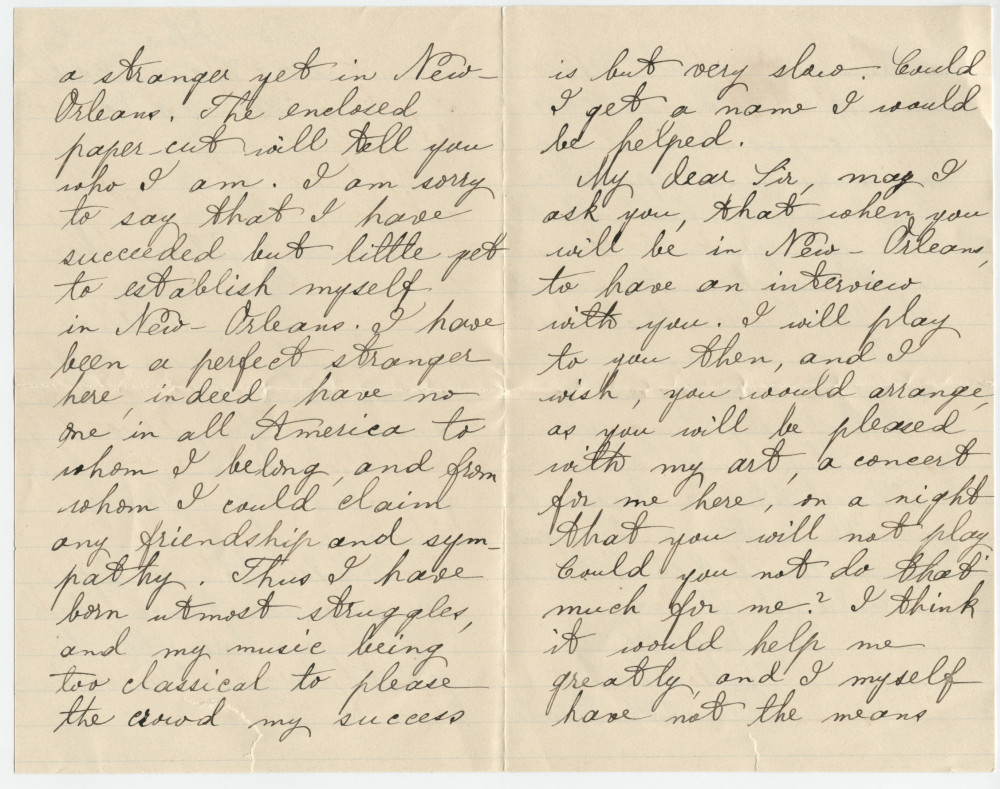 a stranger yet in New-
Orleans. The enclosed
paper-cut will tell you
who I am. I am sorry
to say that I have
succeeded but little yet
to establish myself
in New-Orleans. I have
been a perfect stranger
here, indeed, have no
one in all America to
whom I belong, and from
whom I could claim
any friendship and sym-
pathy. Thus I have
born utmost struggles,
and my music being
too classical to please
the crowd my success
is but very slow. Could
I get a name I would
be helped.
My dear Sir, may I
ask you, that when you
will be in New-Orleans,
to have an interview
with you. I will play
to you then, and I
wish, you would arrange,
as you will be pleased
with my art, a concert
for me here, on a night
that you will not play.
Could you not do that
much for me? I think
it would help me
greatly, and I myself
have not the means